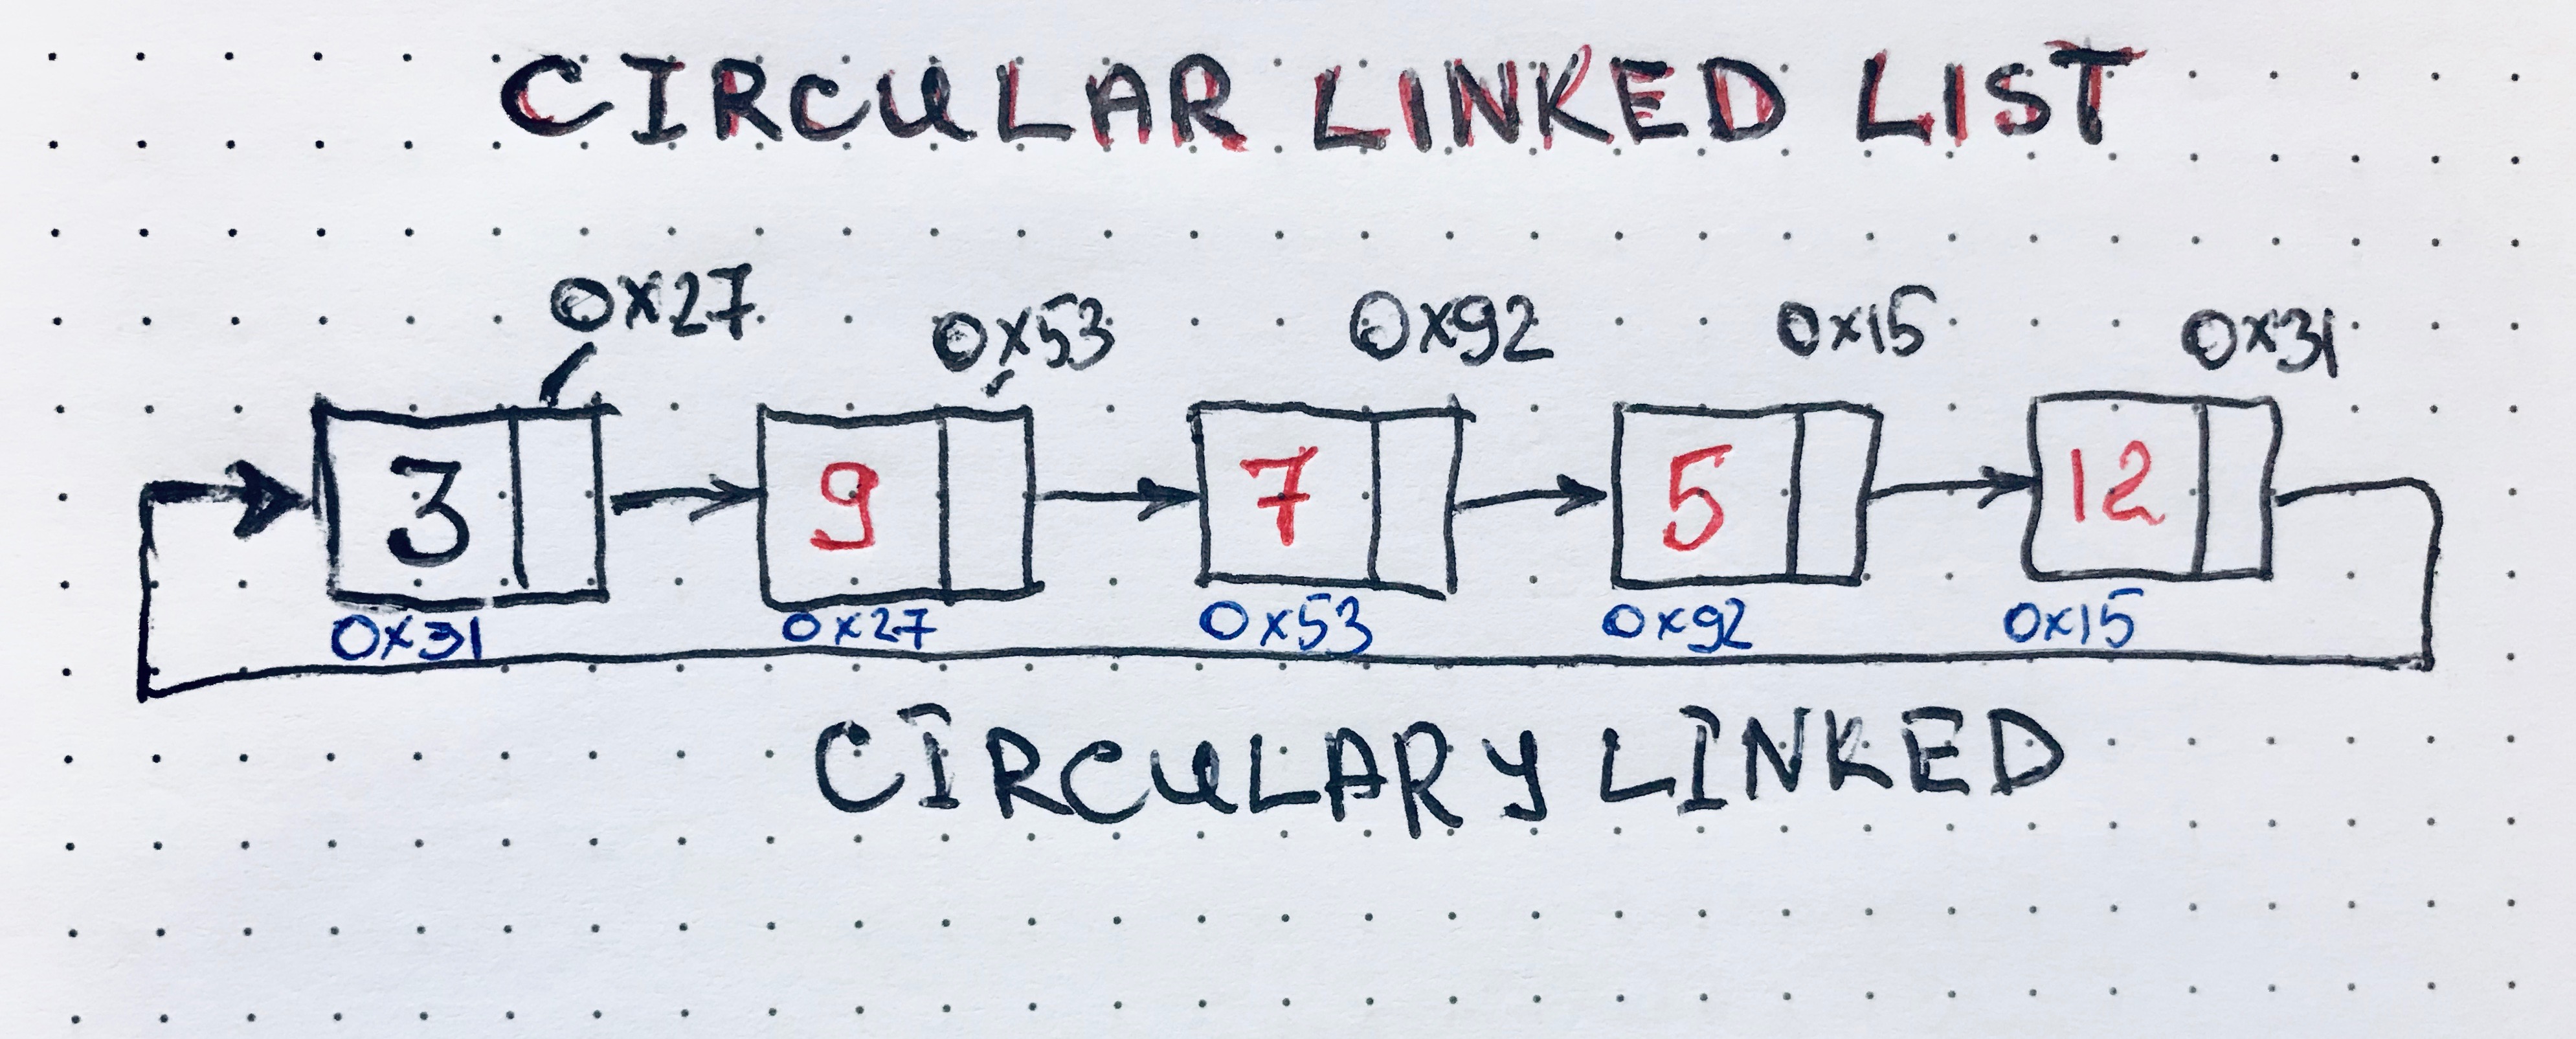 CIRCULAR LINKED LIST
0x27 0x53 0x92 0x15 0x31
3 9 7 5 12
0x31 0x27 0x53 0x92 0x15
CIRCULARY LINKED